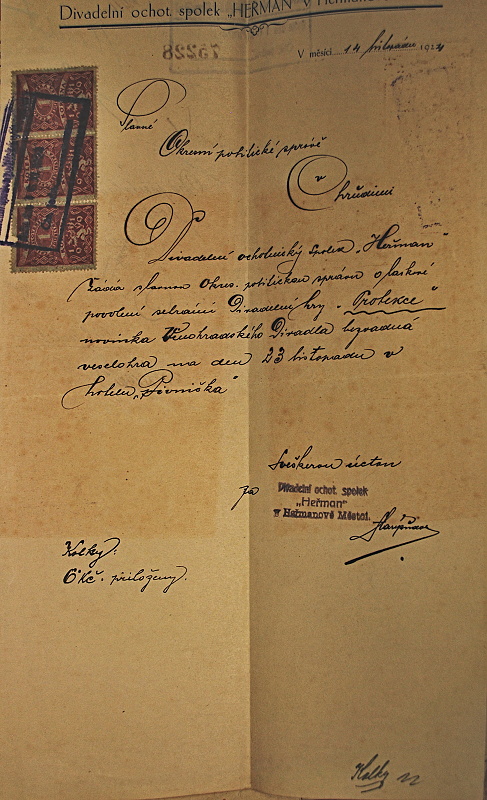 Divadelní ochot. spolek „HEŘMAN" v Heřmanově
75228
V měsíci 14 listopadu 1924
Slavné
Okresní politické správě
v Chrudimi
Divadelní ochotnický spolek „Heřman"
žádá slavnou okres. politickou správu o laskavé
povolení sehrání Divadelní hry „Protekce"
novinka Vinohradského Divadla bezvadná
veselohra na den 23 listopadu v
hotelu „Pivniška"
S veškerou úctou
za
Divadelní ochot. spolek
„Heřman"
v Heřmanově Městci.
Kolky:
6 Kč. přiloženy.
Kolky